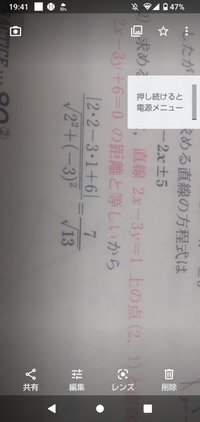 19:41
47%
押し続けると
電源メニュー
たが
求める直線の方程式は
-2x±5
求める
直線 2x-3y=1 上の点 (2, 1)
2x-3y+6=0 の距離と等しいから
|2・2-3・1+6| / √2²+(-3)² = 7 / √13
共有
編集
レンズ
削除